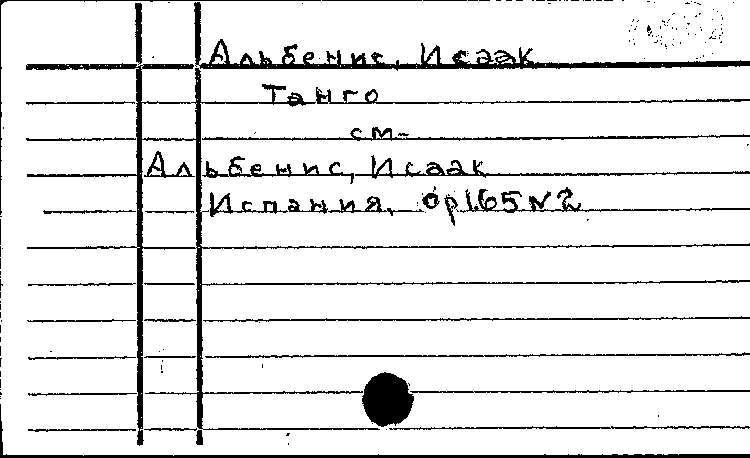 Альбенис, Исаак
Танго
см.
Альбенис, Исаак
Испания. op165 N2